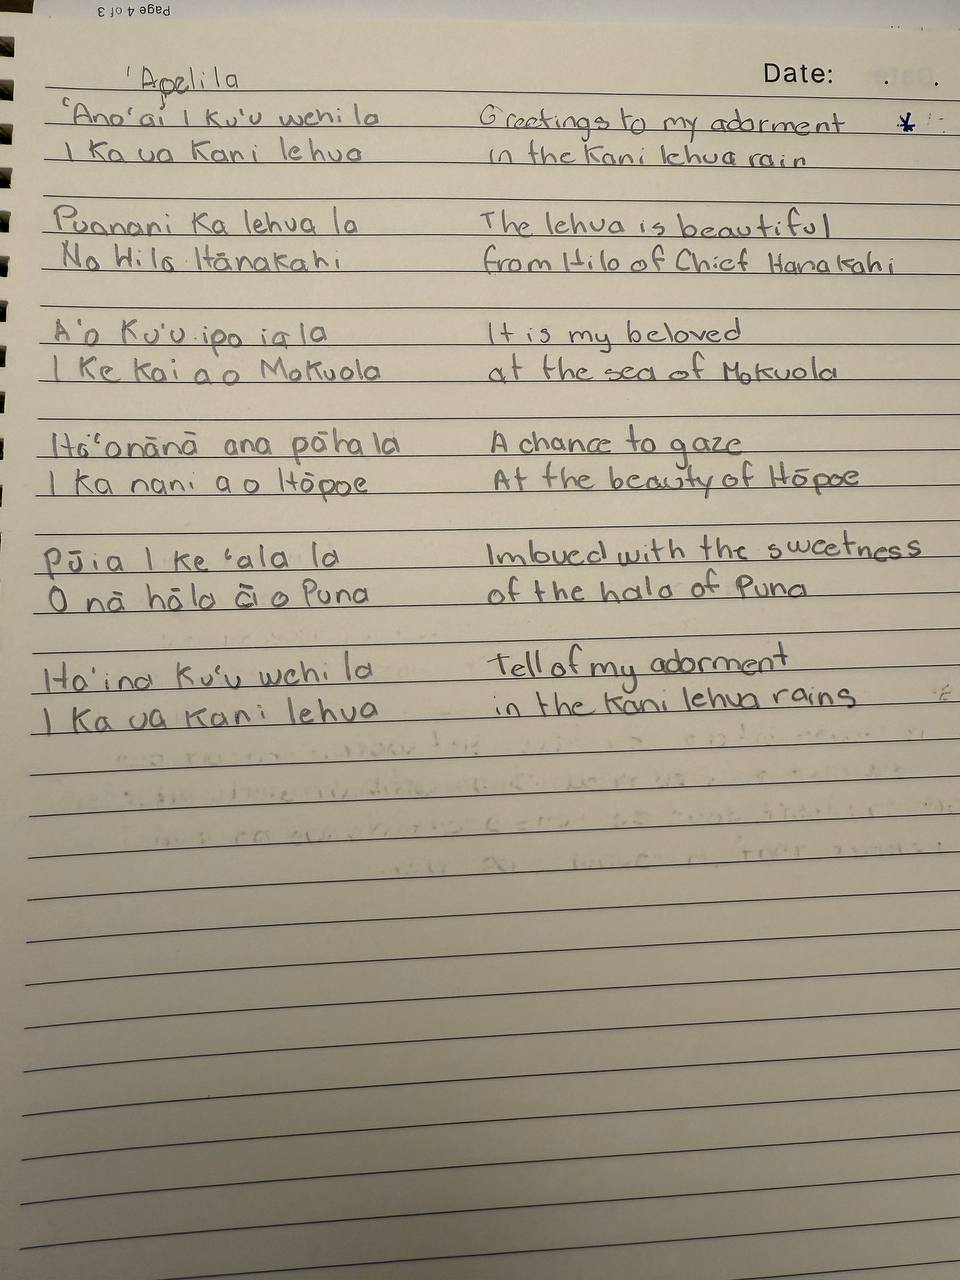 Page 4 of 3
Date: . .
'Apelila
'Ano'ai I Ku'u wehi la
Greetings to my adorment *
I Ka ua Kani lehua
in the Kani lehua rain
Puanani Ka lehua la
The lehua is beautiful
No Hilo Hānakahi
from Hilo of Chief Hanakahi
A'o Ku'u ipo ia la
It is my beloved
I Ke Kai a o Mokuola
at the sea of Mokuola
Hō'onānā ana pāha la
A chance to gaze
I Ka nani a o Hōpoe
At the beauty of Hōpoe
Pūia I ke 'ala la
Imbued with the sweetness
O nā hāla ā o Puna
of the hala of Puna
Ha'ina Ku'u wehi la
Tell of my adorment
I Ka ua Kani lehua
in the Kani lehua rains